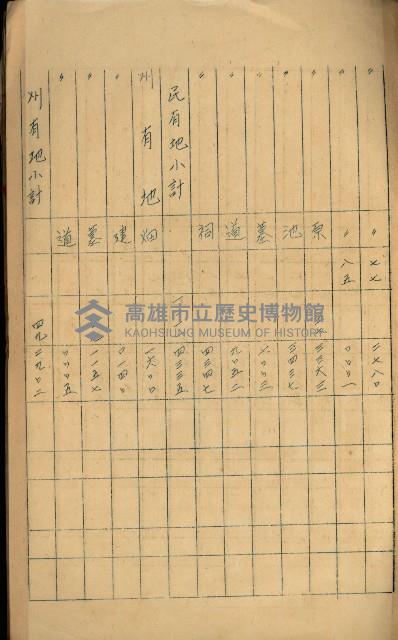 〃 〃 七七 二七八〇
〃 〃 八五 〇〇〇一
〃 原
〃 池 三四三七
〃 墓
〃 道 九〇五二
〃 祠 四三四七
民有地小計 四三三五
州有地 畑 一六〇〇
〃 建 〇一四〇
〃 墓 一一五七
〃 道 〇〇〇五
州有地小計 四九二九〇二
高雄市立歷史博物館
KAOHSIUNG MUSEUM OF HISTORY